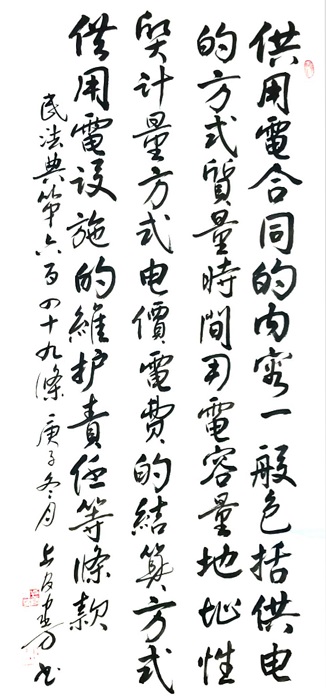 供用電合同的内容一般包括供电
的方式質量時間用電容量地址性
質计量方式电價電費的結算方式
供用電設施的維护責任等條款
民法典第六百四十九條 庚子冬月 书